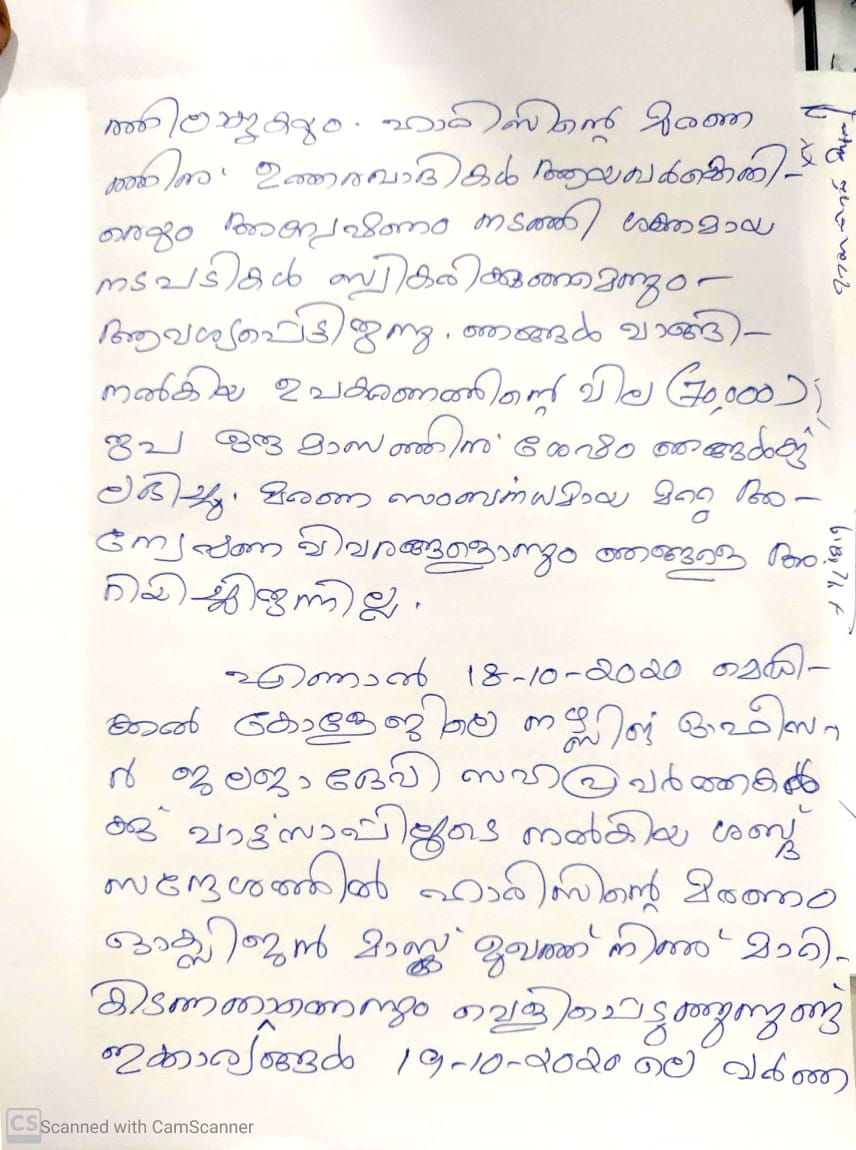 ത്തിലായുകയും. ഹാരിസിന്റെ മരണ
ത്തിന് ഉത്തരവാദികൾ ആയവർക്കെതി-
രെയും അന്വേഷണം നടത്തി ശക്തമായ
നടപടികൾ സ്വീകരിക്കുന്നമെന്നും-
ആവശ്യപ്പെട്ടിരുന്നു. ഞങ്ങൾ വാങ്ങി-
നൽകിയ ഉപകരണത്തിന്റെ വില (70,000)
രൂപ ഒരു മാസത്തിന് ശേഷം ഞങ്ങൾക്കു്
ലഭിച്ചു. മരണ സംബന്ധമായ മറ്റു അ-
ന്വേഷണ വിവരങ്ങളൊന്നും ഞങ്ങളെ അ
റിയിച്ചിരുന്നില്ല.
എന്നാൽ 18-10-2020 മെഡി-
ക്കൽ കോളേജിലെ നഴ്സിങ്ങ് ഓഫീസ
ർ ജലജാദേവി സഹപ്രവർത്തകർ
ക്ക് വാട്ട്സാപ്പിലൂടെ നൽകിയ ശബ്ദ
സന്ദേശത്തിൽ ഹാരിസിന്റെ മരണം
ഓക്സിജൻ മാസ്ക്ക് മുഖത്ത് നിന്ന് മാറി-
കിടന്നതാണെന്നും വെളിപ്പെടുത്തുന്നുണ്ട്
ഇക്കാര്യങ്ങൾ 19-10-2020 ലെ വർത്ത
CS Scanned with CamScanner